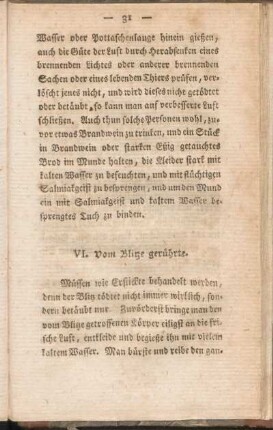 — 31 —
Wasser oder Pottaschenlauge hinein gießen,
auch die Güte der Luft durch Herabsenken eines
brennenden Lichtes oder anderer brennenden
Sachen oder eines lebenden Thiers prüfen, ver-
löscht jenes nicht, und wird dieses nicht getödtet
oder betäubt, so kann man auf verbesserte Luft
schließen. Auch thun solche Personen wohl, zu-
vor etwas Brandwein zu trinken, und ein Stück
in Brandwein oder starken Eßig getauchtes
Brod im Munde halten, die Kleider stark mit
kalten Wasser zu befeuchten, und mit flüchtigen
Salmiakgeist zu besprengen, und um den Mund
ein mit Salmiakgeist und kaltem Wasser be-
sprengtes Tuch zu binden.
VI. Vom Blitze gerührte.
Müssen wie Erstickte behandelt werden,
denn der Blitz tödtet nicht immer wirklich, son-
dern betäubt nur. Zuvörderst bringe man den
vom Blitze getroffenen Körper eiligst an die fri-
sche Luft, entkleide und begieße ihn mit vielem
kaltem Wasser. Man bürste und reibe den gan-